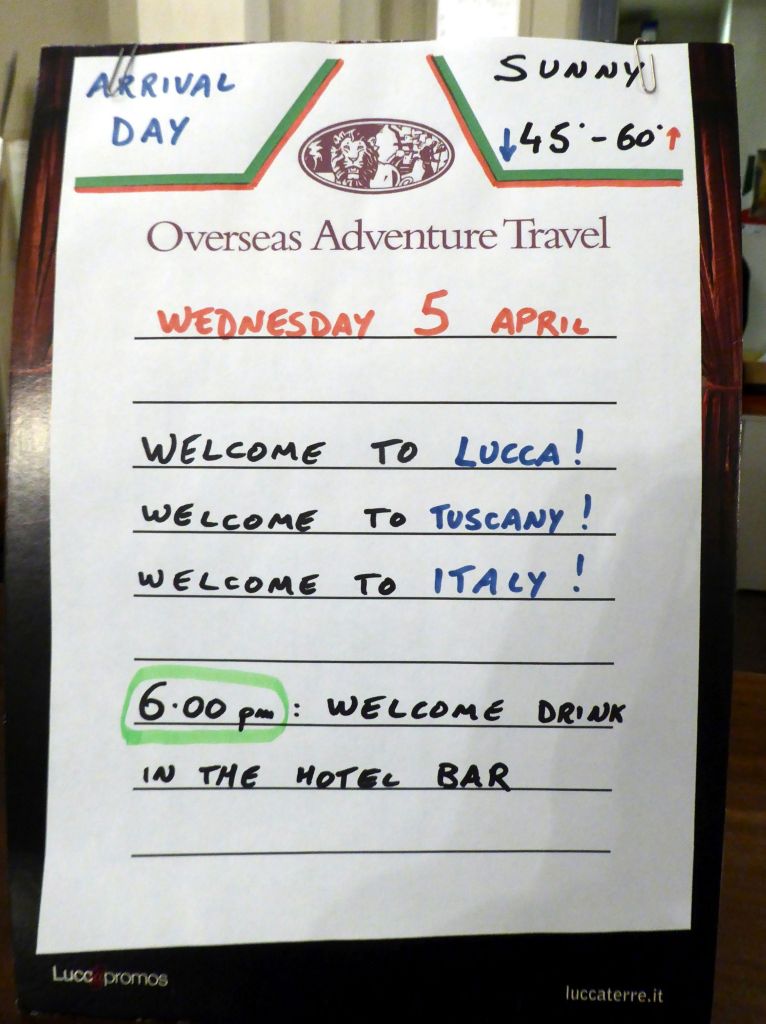 ARRIVAL
DAY
SUNNY
↓45° - 60°↑
Overseas Adventure Travel
WEDNESDAY 5 APRIL
WELCOME TO LUCCA!
WELCOME TO TUSCANY!
WELCOME TO ITALY!
6.00 pm: WELCOME DRINK
IN THE HOTEL BAR
Luccapromos
luccaterre.it